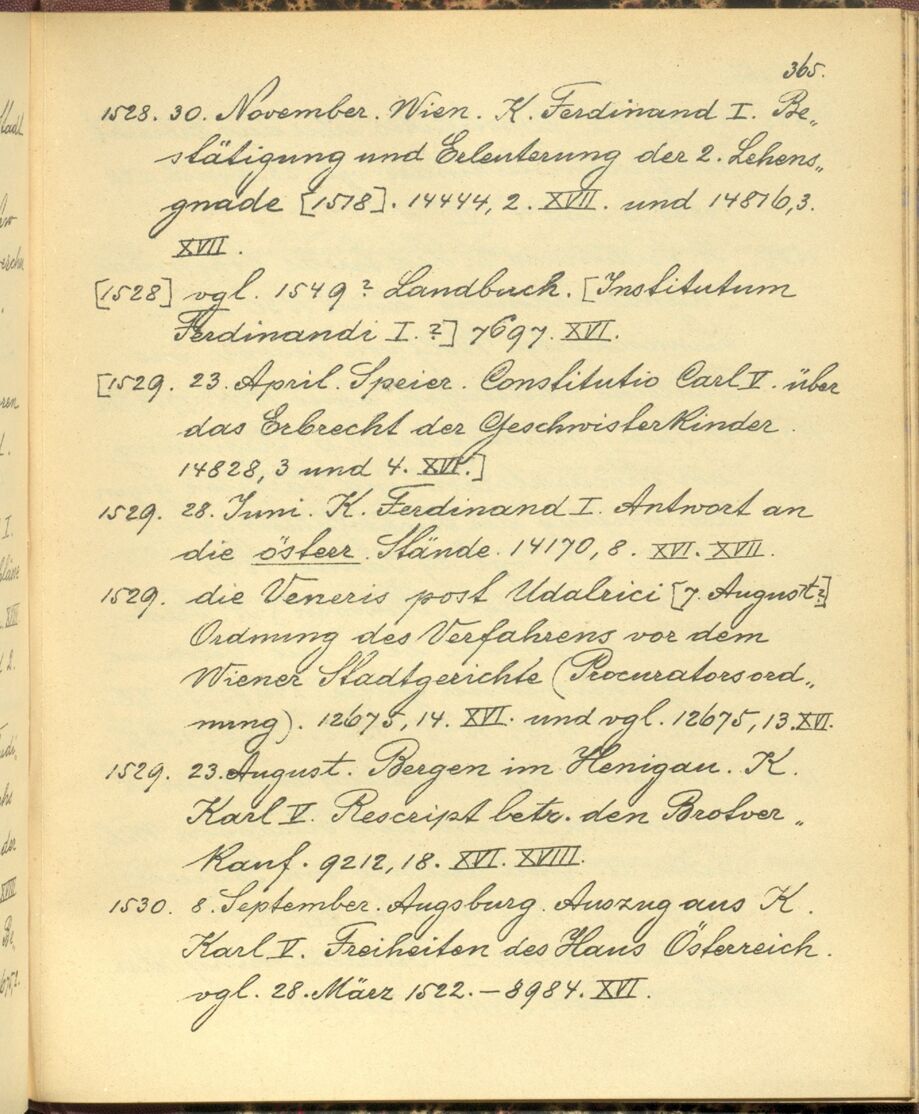 365.
1528. 30. November. Wien. K. Ferdinand I. Be„
stätigung und Erleuterung der 2. Lehens„
gnade [1518]. 14444, 2. XVII. und 14876,3.
XVII.
[1528] vgl. 1549? Landbuch. [Institutum
Ferdinandi I. ?] 7697. XVI.
[1529. 23. April. Speier. Constitutio Carl V. über
das Erbrecht der Geschwisterkinder.
14828, 3 und 4. XVI.]
1529. 28. Juni. K. Ferdinand I. Antwort an
die österr. Stände. 14170, 8. XVI. XVII.
1529. die Veneris post Udalrici [7. August?]
Ordnung des Verfahrens vor dem
Wiener Stadtgerichte (Procuratorsord„
nung). 12675, 14. XVI. und vgl. 12675, 13. XVI.
1529. 23. August. Bergen im Henigau. K.
Karl V. Rescript betr. den Brotver„
kauf. 9212, 18. XVI. XVIII.
1530. 8. September. Augsburg. Auszug aus K.
Karl V. Freiheiten des Haus Österreich.
vgl. 28. März 1522. – 8984. XVI.